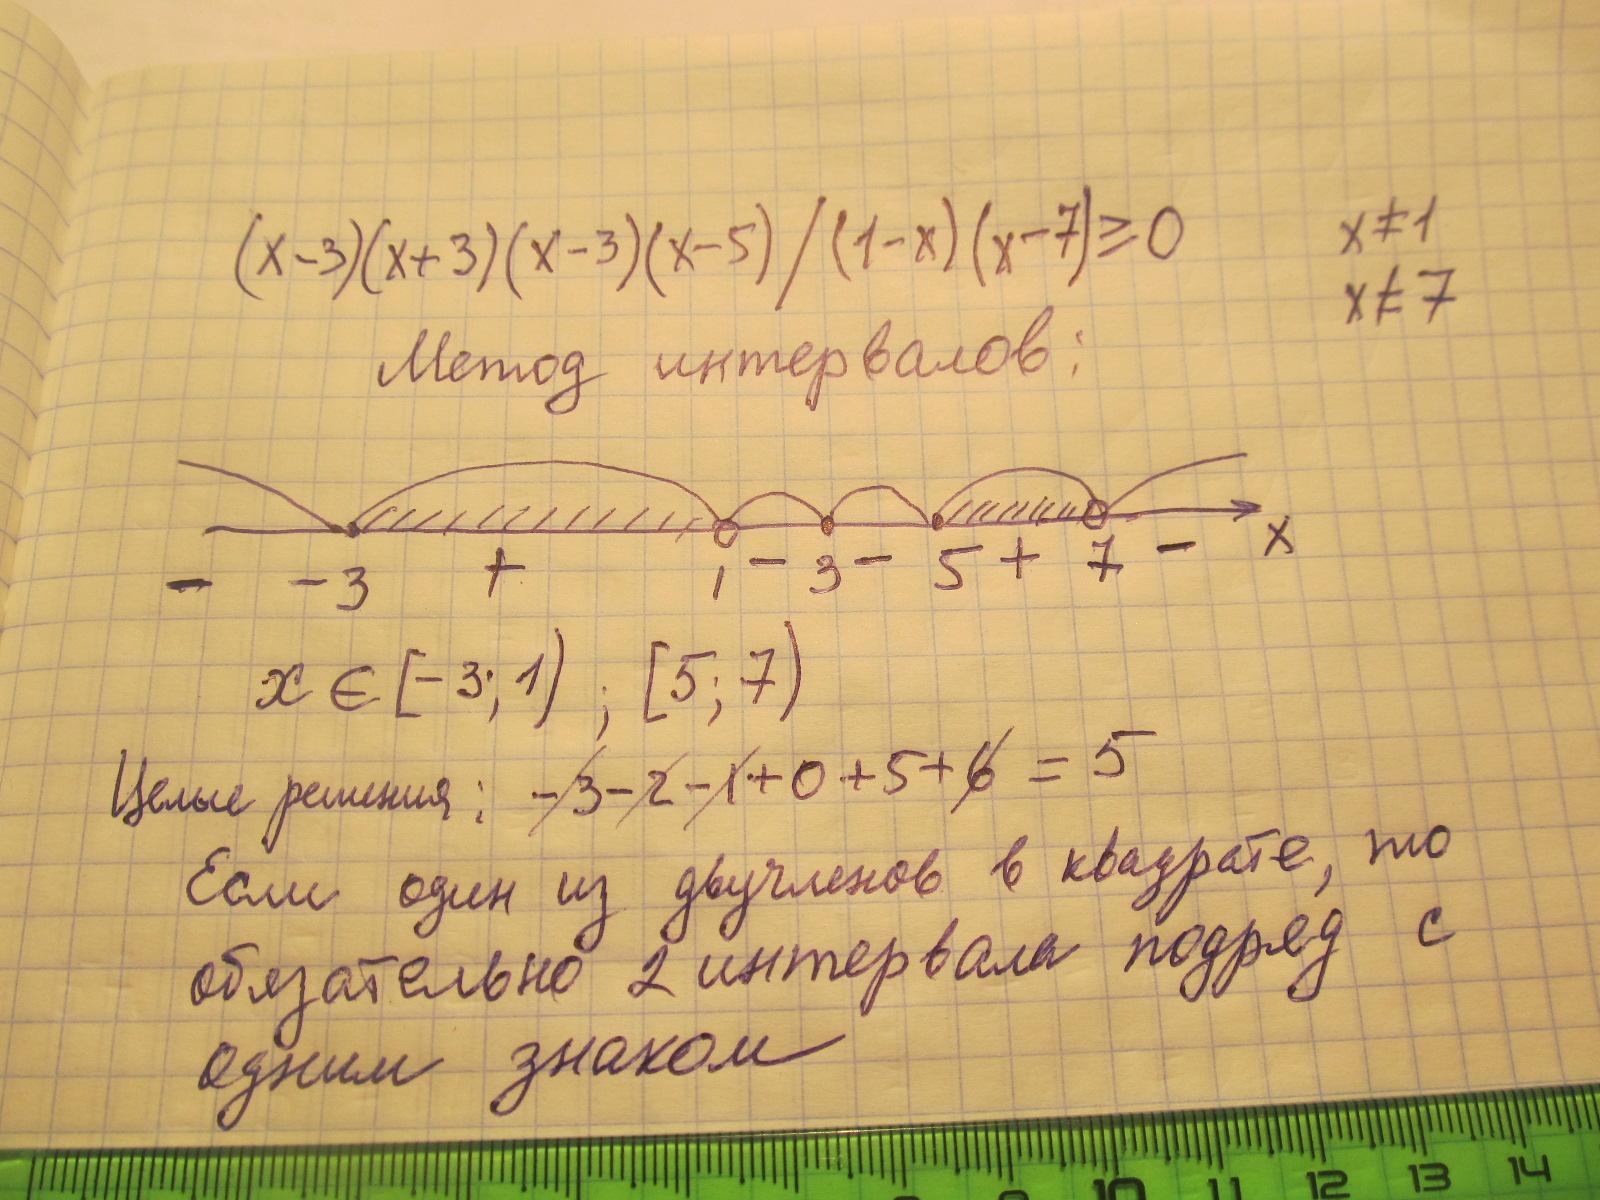 (x-3)(x+3)(x-3)(x-5)/(1-x)(x-7)≥0 x≠1
x≠7
Метод интервалов:
- -3 + 1 - 3 - 5 + 7 - x
x ∈ [-3; 1) ; [5; 7)
Целые решения: -3-2-1+0+5+6 = 5
Если один из двучленов в квадрате, то
обязательно 2 интервала подряд с
одним знаком
10 11 12 13 14